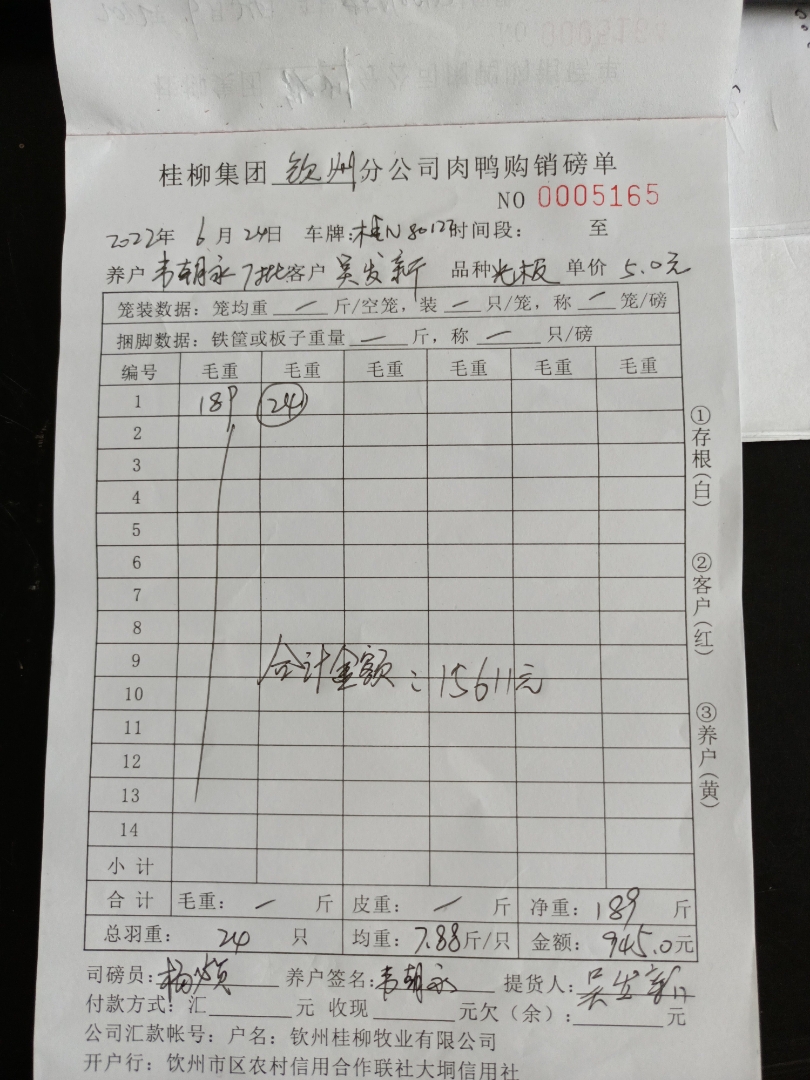 桂柳集团 钦州 分公司肉鸭购销磅单
NO 0005165
2022年 6月 24日 车牌:桂N 时间段: 至
养户 韦朝永 7批 客户 吴发新 品种 光板 单价 5.0元
笼装数据: 笼均重 一 斤/空笼, 装 一 只/笼, 称 一 笼/磅
捆脚数据: 铁筐或板子重量 一 斤, 称 一 只/磅
编号 毛重 毛重 毛重 毛重 毛重 毛重
1 189 24
2
3
4
5
6
7
8
9
合计金额:15611元
10
11
12
13
14
小计
合计 毛重: 一 斤 皮重: 一 斤 净重: 189 斤
总羽重: 24 只 均重: 7.88斤/只 金额: 945.0元
司磅员: 养户签名: 韦朝永 提货人: 吴发新
付款方式: 汇 元 收现 元欠(余): 元
公司汇款帐号: 户名: 钦州桂柳牧业有限公司
开户行: 钦州市区农村信用合作联社大垌信用社
①存根(白)
②客户(红)
③养户(黄)